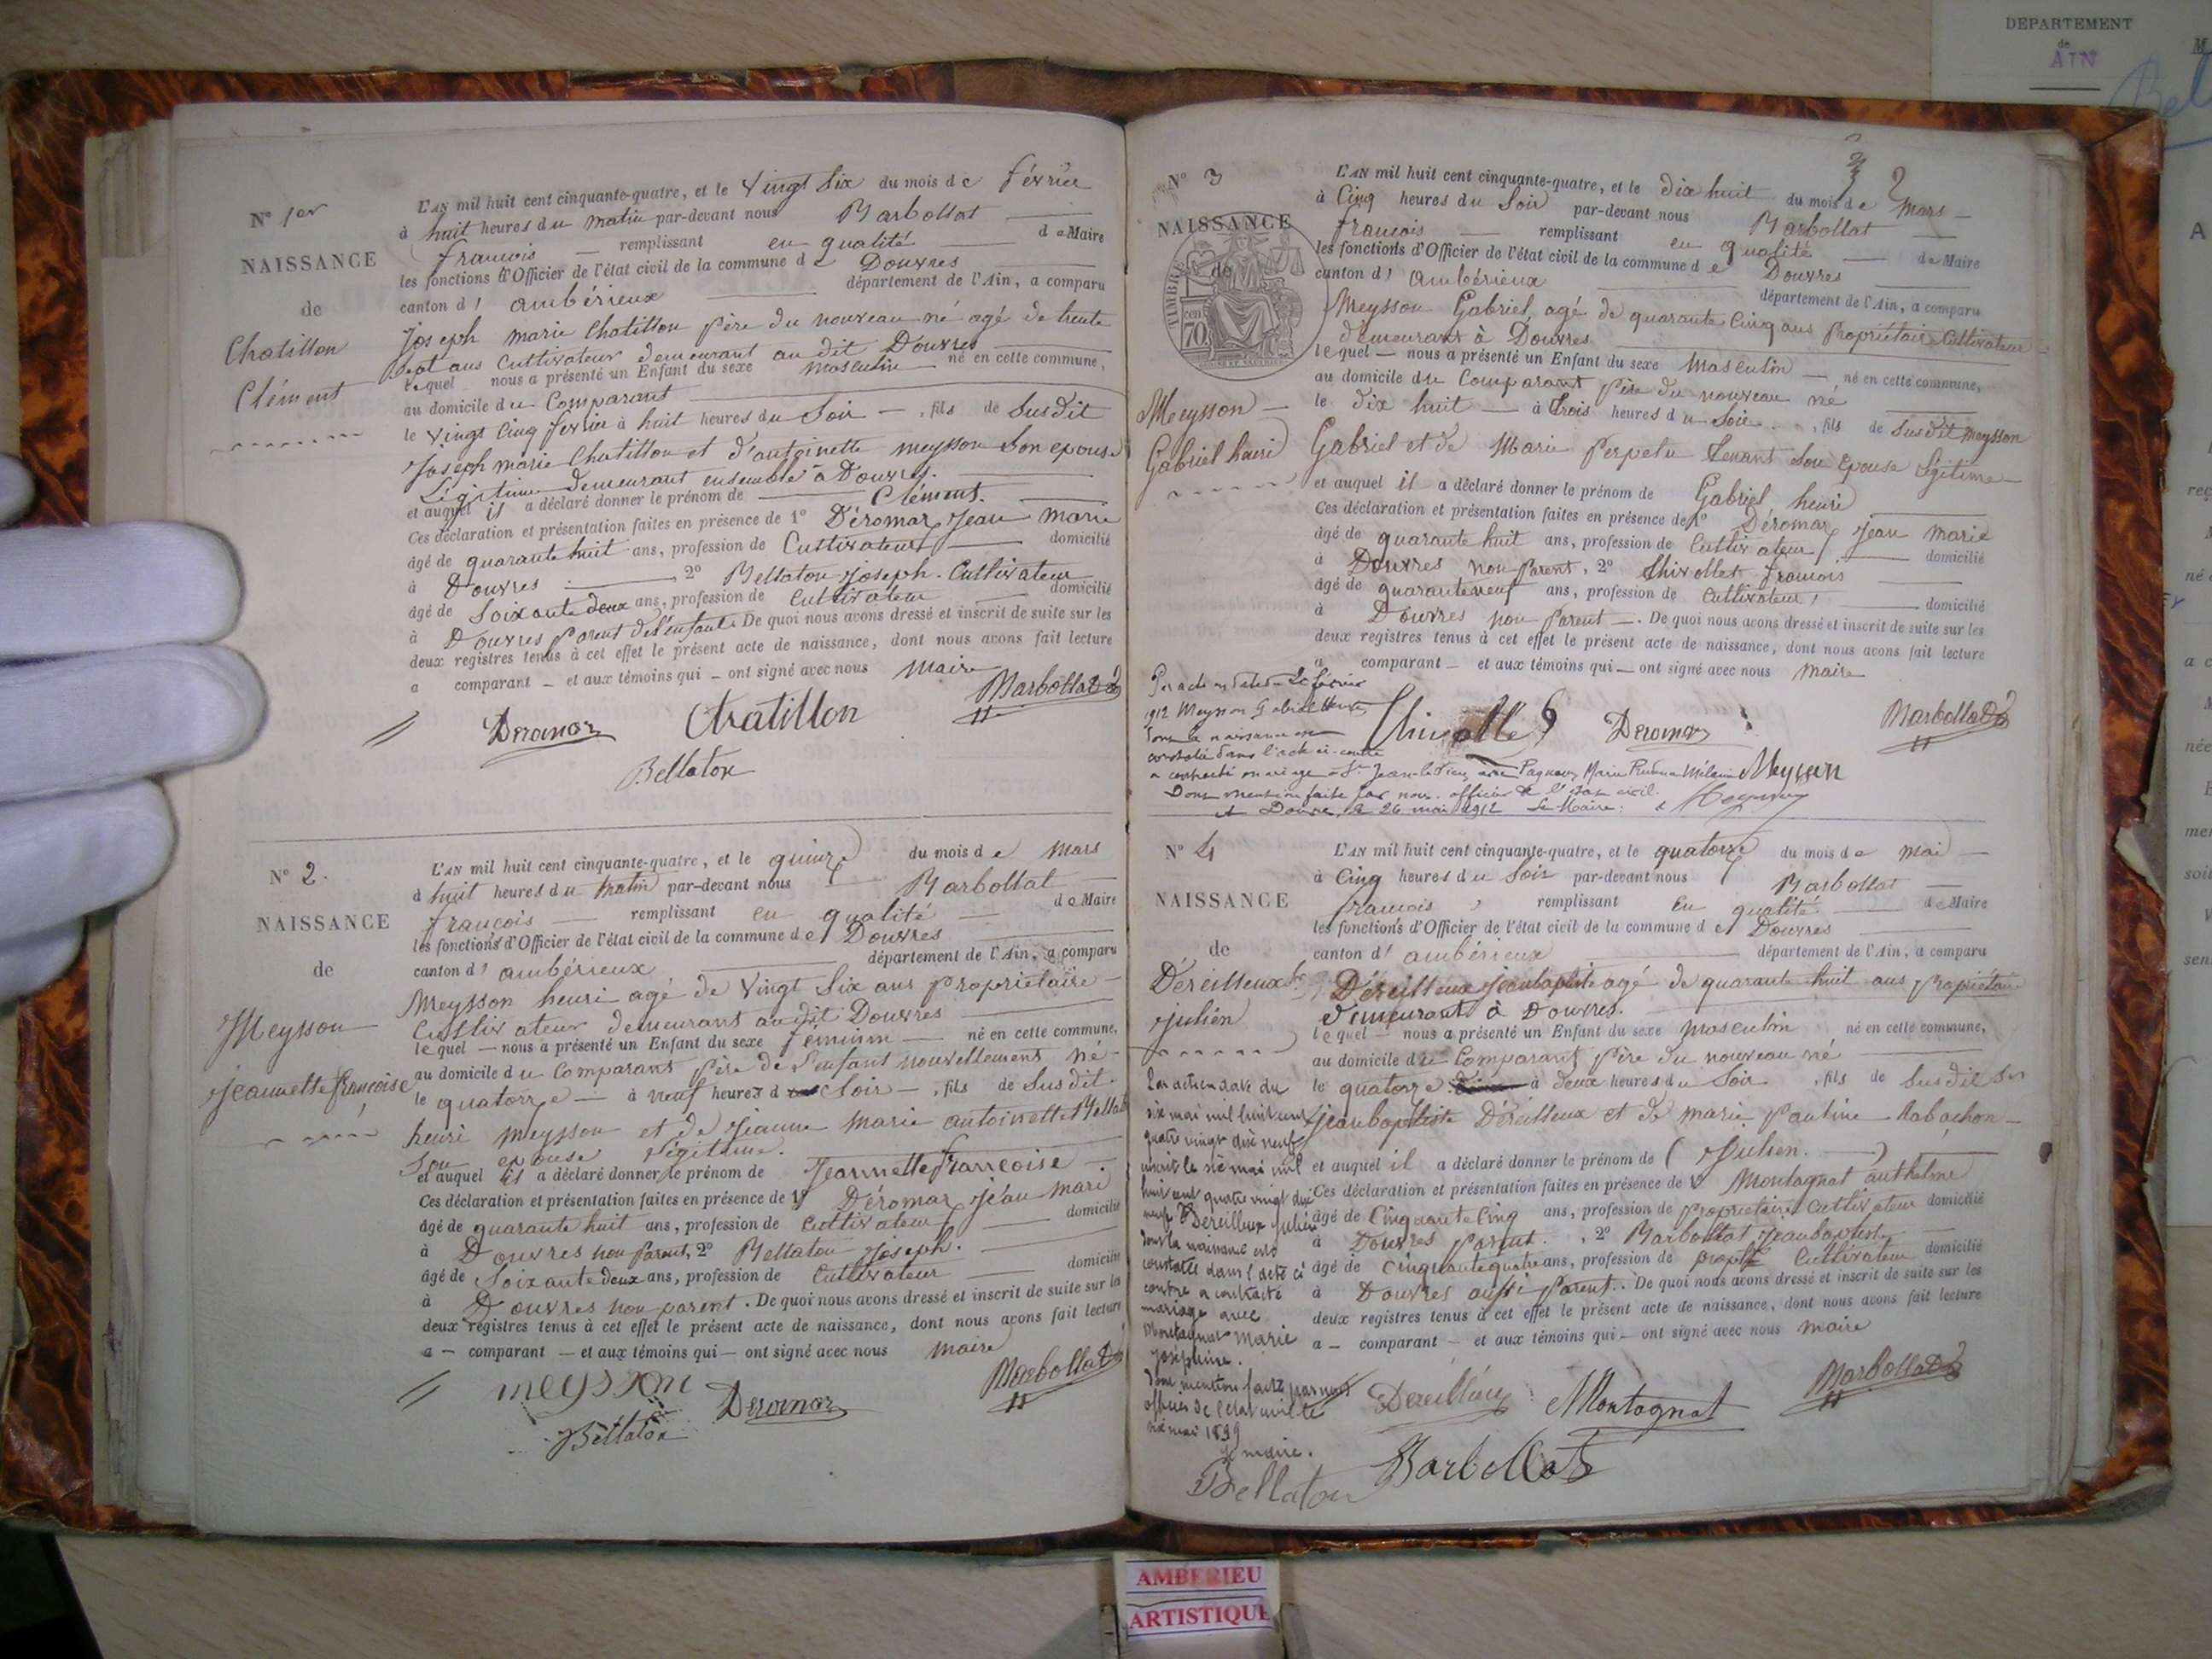 DEPARTEMENT
de
AIN
N° 1er
NAISSANCE
de
Chatillon
Clément
L'AN mil huit cent cinquante-quatre, et le Vingt Six du mois de février
à huit heures du matin par-devant nous Barbollat
francois remplissant en qualité de Maire
les fonctions d'Officier de l'état civil de la commune de Douvres
canton d' ambérieux département de l'Ain, a comparu
Joseph marie Chatillon père du nouveau né agé de trente
Sept ans Cultivateur demeurant au dit Douvres
lequel nous a présenté un Enfant du sexe masculin né en cette commune,
au domicile du Comparant
le vingt Cinq fevrier à huit heures du Soir, fils de Susdit
Joseph marie Chatillon et d'antoinette meysson Son epouse
Légitime demeurant ensemble à Douvres.
et auquel il a déclaré donner le prénom de Clément.
Ces déclaration et présentation faites en présence de 1° Déromaz Jean marie
âgé de quarante huit ans, profession de Cultivateur domicilié
à Douvres 2° Bellaton Joseph. Cultivateur
âgé de Soixante deux ans, profession de Cultivateur domicilié
à Douvres parent de l'enfant. De quoi nous avons dressé et inscrit de suite sur les
deux registres tenus à cet effet le présent acte de naissance, dont nous avons fait lecture
a comparant et aux témoins qui ont signé avec nous maire
Barbollat
Deromaz
Chatillon
Bellaton
N° 2.
NAISSANCE
de
Meysson
Jeannette françoise
L'AN mil huit cent cinquante-quatre, et le quinze du mois de mars
à huit heures du matin par-devant nous Barbollat
françois remplissant en qualité de Maire
les fonctions d'Officier de l'état civil de la commune de Douvres
canton d' ambérieux département de l'Ain, a comparu
Meysson henri agé de Vingt Six ans propriétaire
Cultivateur demeurant au dit Douvres
lequel nous a présenté un Enfant du sexe féminin né en cette commune,
au domicile du Comparant père de l'enfant nouvellement né
le quatorze à neuf heures d Soir, fils de Susdit
henri meysson et de Jeanne marie antoinette Bellaton
Son epouse Légitime.
et auquel il a déclaré donner le prénom de Jeannette françoise
Ces déclaration et présentation faites en présence de 1° Déromaz Jéan marie
âgé de quarante huit ans, profession de Cultivateur domicilié
à Douvres non parent, 2° Bellaton Joseph.
âgé de Soixante deux ans, profession de Cultivateur domicilié
à Douvres non parent. De quoi nous avons dressé et inscrit de suite sur les
deux registres tenus à cet effet le présent acte de naissance, dont nous avons fait lecture
a comparant et aux témoins qui ont signé avec nous maire
Barbollat
meysson
Deromaz
Bellaton
N° 3
NAISSANCE
de
TIMBRE
70
Meysson
Gabriel henri
L'AN mil huit cent cinquante-quatre, et le dix huit du mois de Mars
à Cinq heures du Soir par-devant nous Barbollat
francois remplissant en qualité de Maire
les fonctions d'Officier de l'état civil de la commune de Douvres
canton d' ambérieux département de l'Ain, a comparu
Meysson Gabriel, agé de quarante Cinq ans propriétaire Cultivateur
demeurant à Douvres
lequel nous a présenté un Enfant du sexe Masculin né en cette commune,
au domicile du Comparant père du nouveau né
le dix huit à trois heures du Soir, fils de Susdit Meysson
Gabriel et de Marie perpetu Tenant Son Epouse Légitime
et auquel il a déclaré donner le prénom de Gabriel henri
Ces déclaration et présentation faites en présence de 1° Déromaz Jean Marie
âgé de quarante huit ans, profession de Cultivateur domicilié
à Douvres non parent, 2° Chivollet francois
âgé de quaranteneuf ans, profession de Cultivateur domicilié
à Douvres non parent. De quoi nous avons dressé et inscrit de suite sur les
deux registres tenus à cet effet le présent acte de naissance, dont nous avons fait lecture
a comparant et aux témoins qui ont signé avec nous maire
Par acte en date du 20 février
1912 Meysson Gabriel Henri
dont la naissance est
constatée dans l'acte ci-contre
a contracté mariage à St Jean-le-Vieux avec Pagneux Marie Mélanie
Dont mention faite par nous officier de l'état civil.
à Douvres, le 26 mai 1912 Le Maire:
Chivollet
Deromaz
Barbollat
Meysson
N° 4
NAISSANCE
de
Déreilleux
Julien
L'AN mil huit cent cinquante-quatre, et le quatorze du mois de mai
à Cinq heures du Soir par-devant nous Barbollat
francois remplissant En qualité de Maire
les fonctions d'Officier de l'état civil de la commune de Douvres
canton d' ambérieux département de l'Ain, a comparu
Déreilleux Jeanbaptiste agé de quarante huit ans propriétaire
demeurant à Douvres.
lequel nous a présenté un Enfant du sexe masculin né en cette commune,
au domicile du Comparant père du nouveau né
le quatorze à deux heures du Soir, fils de Susdit
Jeanbaptiste Déreilleux et de marie pauline Rabachon
et auquel il a déclaré donner le prénom de (Julien.)
Ces déclaration et présentation faites en présence de 1° Montagnat anthelme
âgé de Cinquante Cinq ans, profession de propriétaire Cultivateur domicilié
à Douvres parent., 2° Barbollat Jeanbaptiste
âgé de cinquantequatre ans, profession de Cultivateur domicilié
à Douvres aussi parent. De quoi nous avons dressé et inscrit de suite sur les
deux registres tenus à cet effet le présent acte de naissance, dont nous avons fait lecture
a comparant et aux témoins qui ont signé avec nous maire
Par acte en date du
six mai mil huit cent
quatre vingt dix neuf
inscrit le six mai mil
huit cent quatre vingt dix
neuf Déreilleux Julien
dont la naissance est
constatée dans l'acte ci
contre a contracté
mariage avec
Montagnat Marie
Joséphine.
dont mention faite par nous
officier de l'état civil le
six mai 1899
maire.
Bellaton
Dereilleux
Montagnat
Barbollat
Barbollat
AMBERIEU
ARTISTIQUE